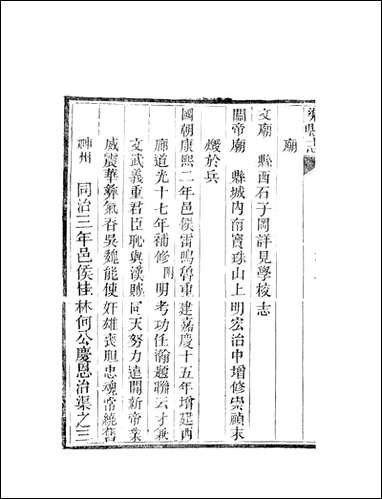 渠縣志
廟
文廟 縣西石子岡詳見學校志
關帝廟 縣城內南寶珠山上明宏治中增修崇禎末
燬於兵
國朝康熙二年邑侯雷鳴魯重建嘉慶十五年增廷西
廊道光十七年補修 明考功任瀚題聯云才兼
文武義重君臣恥與漢賊同天努力遠開新帝業
威震華彝氣吞吳魏能使奸雄喪胆忠魂常繞舊
神州 同治三年邑侯桂林何公慶恩治渠之三